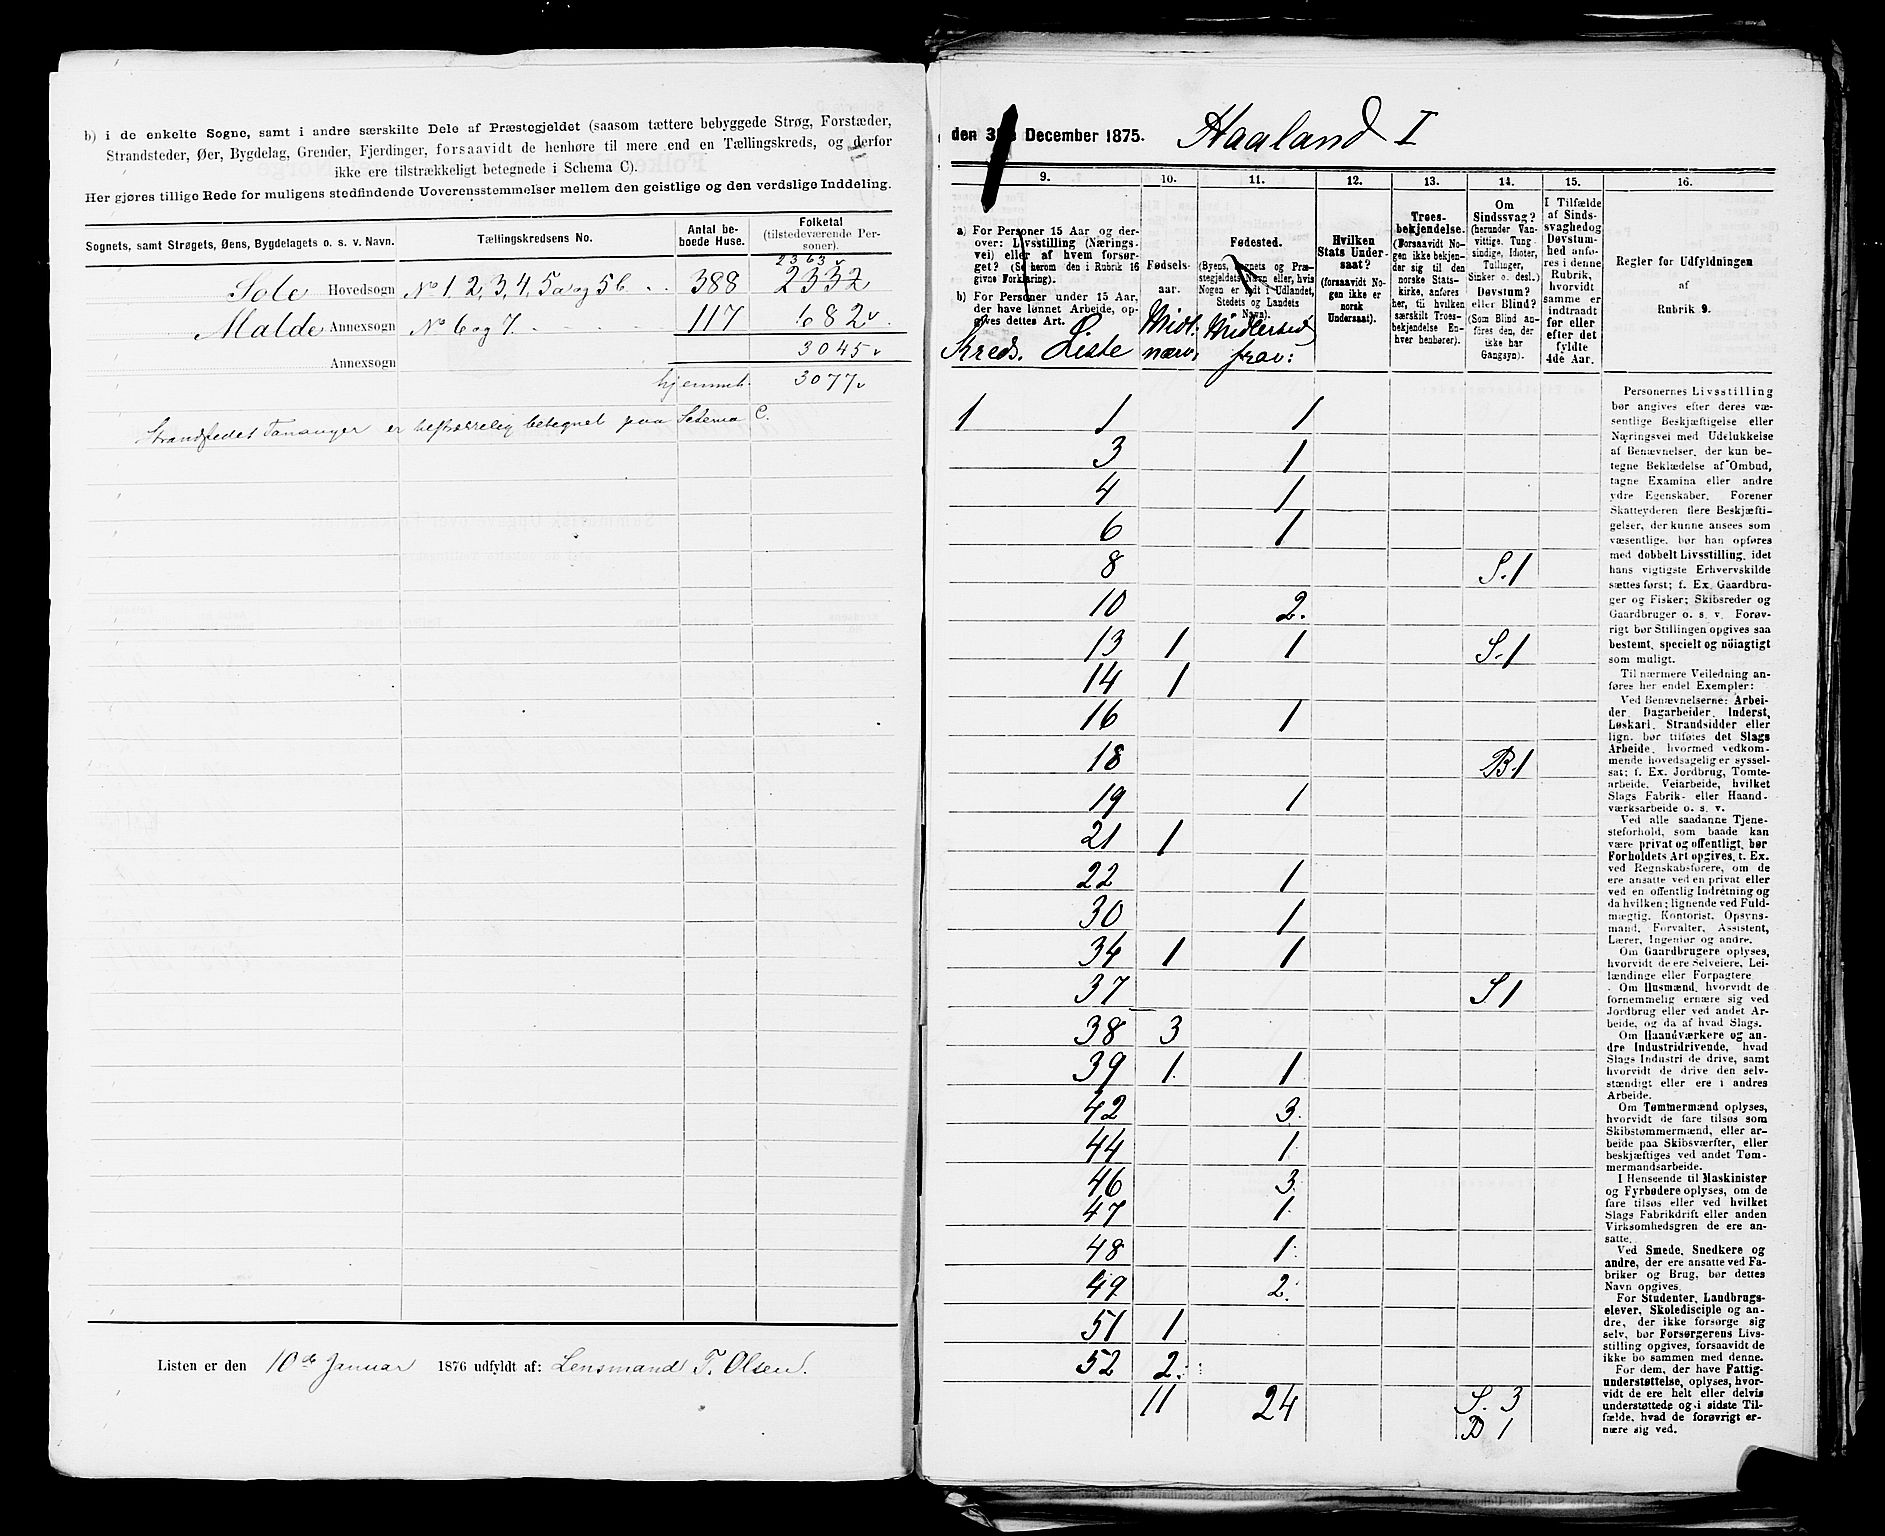 b) i de enkelte Sogne, samt i andre særskilte Dele af Præstegjeldet (saasom tættere bebyggede Strøg, Forstæder,
Strandsteder, Øer, Bygdelag, Grender, Fjerdinger, forsaavidt de henhøre til mere end en Tællingskreds, og derfor
ikke ere tilstrækkeligt betegnede i Schema C).
Her gjøres tillige Rede for muligens stedfindende Uoverensstemmelser mellem den geistlige og den verdslige Inddeling.
Sognets, samt Strøgets, Øens, Bygdelagets o. s. v. Navn. Tællingskredsens No. Antal beboede Huse. Folketal (tilstedeværende Personer).
2363
Sole Hovedsogn No 1, 2, 3, 4, 5a og 5b 388 2332
Malde Annexsogn No 6 og 7. 117 682
Annexsogn 3045
hjemmeh. 3077
Strandstedet Tananger er tilstrækkelig betegnet paa Schema C.
Listen er den 10de Januar 1876 udfyldt af: Lensmand T. Olsen.
den 3 December 1875. Haaland I
9. 10. 11. 12. 13. 14. 15. 16.
a) For Personer 15 Aar og derover: Livsstilling (Næringsvei) eller af hvem forsørget? (Se herom den i Rubrik 16 givne Forklaring).
b) For Personer under 15 Aar, der have lønnet Arbeide, opgives dettes Art.
Fødselsaar.
Fødested.
(Byens, Sognets og Præstegjeldets Navn eller, hvis Nogen er født i Udlandet, Stedets og Landets Navn).
Hvilken Stats Undersaat?
(forsaavidt Nogen ikke er norsk Undersaat).
Troesbekjendelse.
(Forsaavidt Nogen ikke bekjender sig til den norske Statskirke, anføres her, til hvilken særskilt Troesbekjendelse Enhver henhører).
Om Sindssvag?
(herunder Vanvittige, Tungsindige, Idioter, Tullinger, Sinker o. desl.)
Døvstum? eller Blind?
(Som Blind anføres den, der ikke har Gangsyn).
I Tilfælde af Sindssvaghed og Døvstumhed anføres i denne Rubrik, hvorvidt samme er indtraadt før eller efter det fyldte 4de Aar.
Regler for Udfyldningen
af
Rubrik 9.
Kreds. Liste Midl. nærv. Midlertid frav:
1 1 1
3 1
4 1
6 1
8 S. 1
10 2.
13 1 1 S. 1
14 1
16 1
18 B. 1
19 1
21 1
22 1
30 1
34 1 1
37 S 1
38 3
39 1 1
42 3.
44 1.
46 3.
47 1.
48 1.
49 2.
51 1.
52 2.
11 24 S. 3
B 1
Personernes Livsstilling
bør angives efter deres væ-
sentlige Beskjæftigelse eller
Næringsvei med Udelukkelse
af Benævnelser, der kun be-
tegne Beklædelse af Ombud,
tagne Examina eller andre
ydre Egenskaber. Forener
Skatteyderen flere Beskjæfti-
gelser, der kunne ansees som
væsentlige, bør han opføres
med dobbelt Livsstilling, idet
hans vigtigste Erhvervskilde
sættes først; f. Ex. Gaardbru-
ger og Fisker; Skibsreder og
Gaardbruger o. s. v. Forøv-
rigt bør Stillingen opgives saa
bestemt, specielt og nöiagtigt
som muligt.
Til nærmere Veiledning an-
føres her endel Exempler:
Ved Benævnelserne: Arbei-
der, Dagarbeider, Inderst,
Løskarl, Strandsidder eller
lign. bør tilføies det Slags
Arbeide, hvormed vedkom-
mende hovedsagelig er syssel-
sat; f. Ex. Jordbrug, Tomte-
arbeide, Veiarbeide, hvilket
Slags Fabrik- eller Haand-
værksarbeide o. s. v.
Ved alle saadanne Tjene-
steforhold, som baade kan
være privat og offentligt, bør
Forholdets Art opgives, t. Ex.
ved Regnskabsførere, om de
ere ansatte ved en privat eller
ved en offentlig Indretning og
da hvilken; lignende ved Fuld-
mægtig, Kontorist, Opsyns-
mand, Forvalter, Assistent,
Lærer, Ingeniør og andre.
Om Gaardbrugere oplyses,
hvorvidt de ere Selveiere, Lei-
lændinge eller Forpagtere
Om Husmænd, hvorvidt de
fornemmelig ernære sig ved
Jordbrug eller ved andet Ar-
beide, og da af hvad Slags.
Om Haandværkere og an-
dre Industridrivende, hvad
Slags Industri de drive, samt
hvorvidt de drive den selv-
stændigt eller ere i andres
Arbeide.
Om Tømmermænd oplyses,
hvorvidt de fare tilsøs som
Skibstømmermænd, eller ar-
beide paa Skibsværfter, eller
beskjæftiges ved andet Tøm-
mermandsarbeide.
I Henseende til Maskinister
og Fyrbødere oplyses, om de
fare tilsøs eller ved hvilket
Slags Fabrikdrift eller anden
Virksomhedsgren de ere an-
satte.
Ved Smede, Snedkere og
andre, der ere ansatte ved Fa-
briker og Brug, bør dettes
Navn opgives.
For Studenter, Landbrugs-
elever, Skoledisciple og an-
dre, der ikke forsørge sig
selv, bør Forsørgerens Livs-
stilling opgives, forsaavidt de
ikke bo sammen med denne.
For dem, der have Fattig-
understøttelse, oplyses, hvor-
vidt de ere helt eller delvis
understøttede og i sidste Til-
fælde, hvad de forøvrigt er-
nære sig ved.